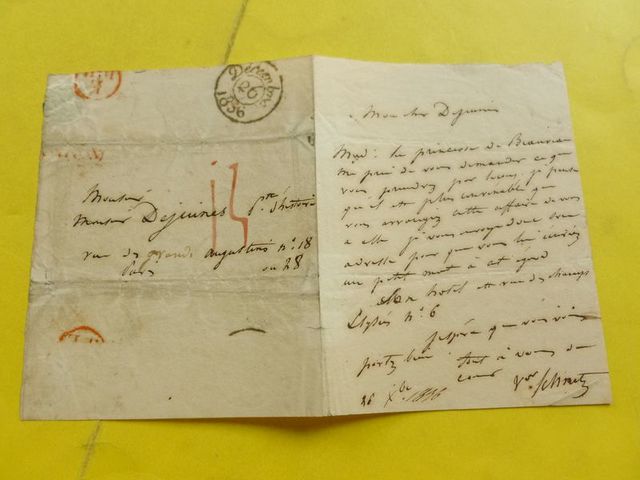 Décembre
26
1836
Monsieur
Monsieur Dejuinne ptre d'histoire
rue des grands augustins n.° 18
ou 28
Paris
15
Mon cher Dejuinne
Mad.e la princesse de Beauvau
me prie de vous demander ce que
vous prendrez par lecon. je pense
qu'il est plus convenable que
vous arrangiez cette affaire de vous
a elle je vous envoye donc son
adresse pour que vous lui ecriviez
un petit mot à cet egard
Son hotel est rue des champs
Elysées n.° 6
J'espère que vous vous
portez bien tout à vous de
coeur
Vor Schnetz
26 Xbre 1836